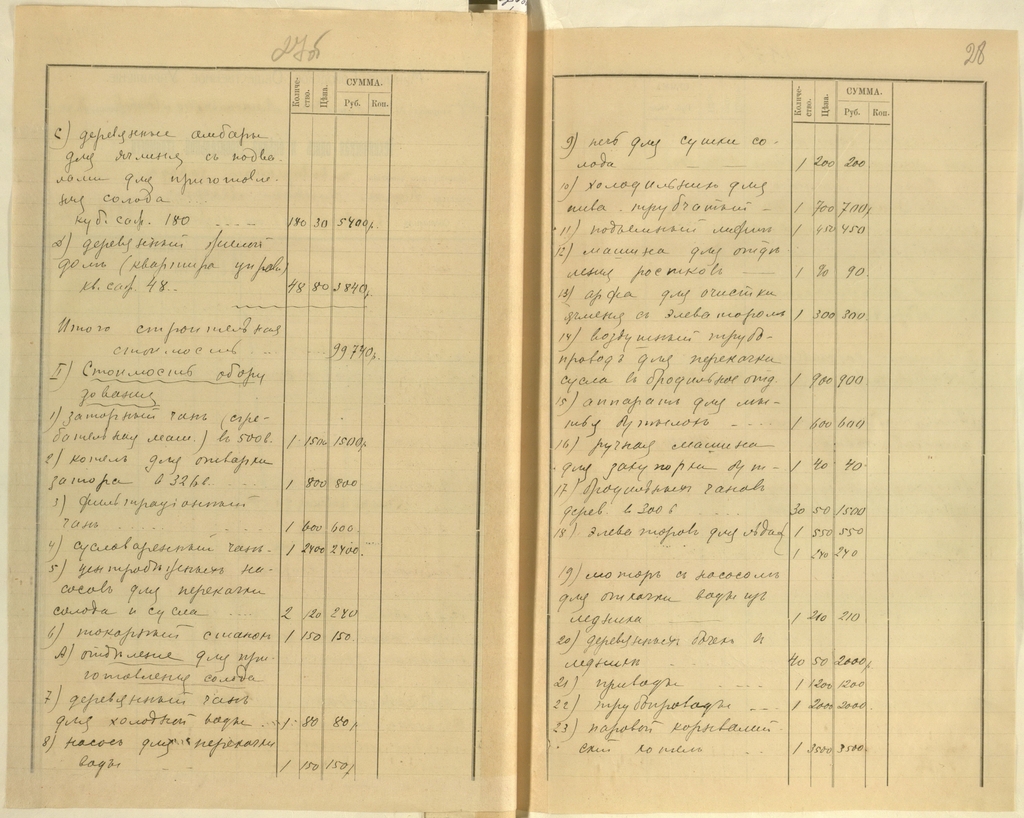 27б
Количество. Цѣна. СУММА. Руб. Коп.
с) деревянные амбары
для ячменя съ подва-
лами для приготовле-
ния солода
куб. саж. 180 180 30 5400р
d) деревянный жилой
домъ (квартира управ.)
кв. саж. 48 48 80 3840р
Итого строительная
стоимость 99740р
II) Стоимость обору
дования
1) заторный чанъ
маш.) въ 500в. 1 1500 1500р
2) котелъ для отварки
затора в 326в. 1 800 800
3) фильтраціонный
чанъ 1 600 600
4) сусловаренный чанъ 1 2400 2400
5) центробѣжныхъ на-
сосовъ для перекачки
солода и сусла 2 120 240
6) токарный станокъ 1 150 150
А) отдѣление для при-
готовления солода
7) деревянный чанъ
для холодной воды 1 80 80р
8) насосъ для перекачки
воды 1 150 150р
28
Количество. Цѣна. СУММА. Руб. Коп.
9) печь для сушки со-
лода 1 200 200
10) холодильникъ для
пива трубчатый 1 700 700р
11) подъемный лифтъ 1 450 450
12) машина для отдѣ
ления ростковъ 1 90 90
13) арфа для очистки
ячменя съ элеваторомъ 1 300 300
14) воздушный трубо-
проводъ для перекачки
сусла въ бродильное отд. 1 900 900
15) аппаратъ для мы-
тья бутылокъ 1 600 600
16) ручная машина
для закупорки бут- 1 40 40
17) бродильныхъ чановъ
дерев. в 200в 30 50 1500
18) элеваторовъ для льда 1 550 550
1 240 240
19) моторъ съ насосомъ
для откачки воды изъ
ледника 1 210 210
20) деревянныхъ бочекъ въ
ледникъ 40 50 2000р
21) приводы 1 1200 1200
22) трубопроводы 1 2000 2000
23) паровой корнвалий
ский котелъ 1 3500 3500